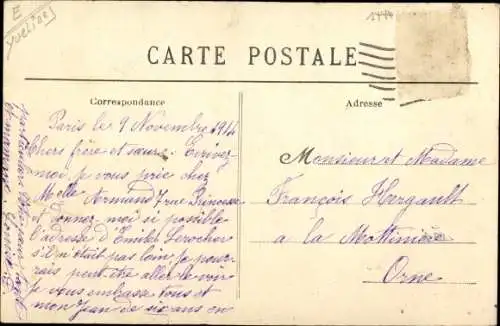 E
Yvelines
CARTE POSTALE
Correspondance
Adresse
Paris le 9 Novembre 1914
Chers frère et sœurs. Ecrivez-
moi, je vous prie chez
Melle Armand 7 rue Princesse
et donnez moi si possible
l'adresse d'Emile Lerocher
s'il n'était pas loin, je pour-
rais peut être aller le voir
Je vous embrasse tous et
mon Jean de six ans en
Monsieur et Madame
François Hergault
a la Mottinière
Orne